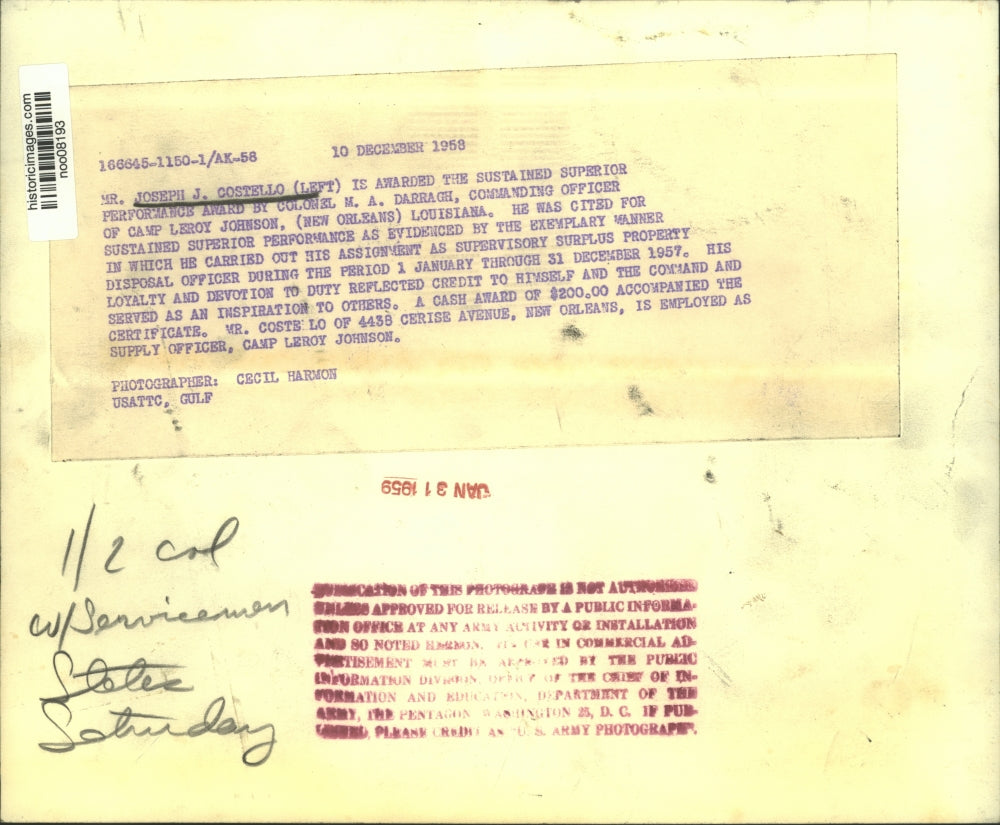 historicimages.com
noo08193
166645-1150-1/AK-58 10 DECEMBER 1958
MR. JOSEPH J. COSTELLO (LEFT) IS AWARDED THE SUSTAINED SUPERIOR
PERFORMANCE AWARD BY COLONEL M. A. DARRAGH, COMMANDING OFFICER
OF CAMP LEROY JOHNSON, (NEW ORLEANS) LOUISIANA. HE WAS CITED FOR
SUSTAINED SUPERIOR PERFORMANCE AS EVIDENCED BY THE EXEMPLARY MANNER
IN WHICH HE CARRIED OUT HIS ASSIGNMENT AS SUPERVISORY SURPLUS PROPERTY
DISPOSAL OFFICER DURING THE PERIOD 1 JANUARY THROUGH 31 DECEMBER 1957. HIS
LOYALTY AND DEVOTION TO DUTY REFLECTED CREDIT TO HIMSELF AND THE COMMAND AND
SERVED AS AN INSPIRATION TO OTHERS. A CASH AWARD OF $200.00 ACCOMPANIED THE
CERTIFICATE. MR. COSTE LO OF 4438 CERISE AVENUE, NEW ORLEANS, IS EMPLOYED AS
SUPPLY OFFICER, CAMP LEROY JOHNSON.
PHOTOGRAPHER: CECIL HARMON
USATTC, GULF
JAN 31 1959
1/2 col
w/Servicemen
States
Saturday
PUBLICATION OF THIS PHOTOGRAPH IS NOT AUTHORIZED
UNLESS APPROVED FOR RELEASE BY A PUBLIC INFORMA-
TION OFFICE AT ANY ARMY ACTIVITY OR INSTALLATION
AND SO NOTED HEREON. ITS USE IN COMMERCIAL AD-
VERTISEMENT MUST BE APPROVED BY THE PUBLIC
INFORMATION DIVISION, OFFICE OF THE CHIEF OF IN-
FORMATION AND EDUCATION, DEPARTMENT OF THE
ARMY, THE PENTAGON WASHINGTON 25, D. C. IF PUB-
LISHED, PLEASE CREDIT AS U. S. ARMY PHOTOGRAPH".